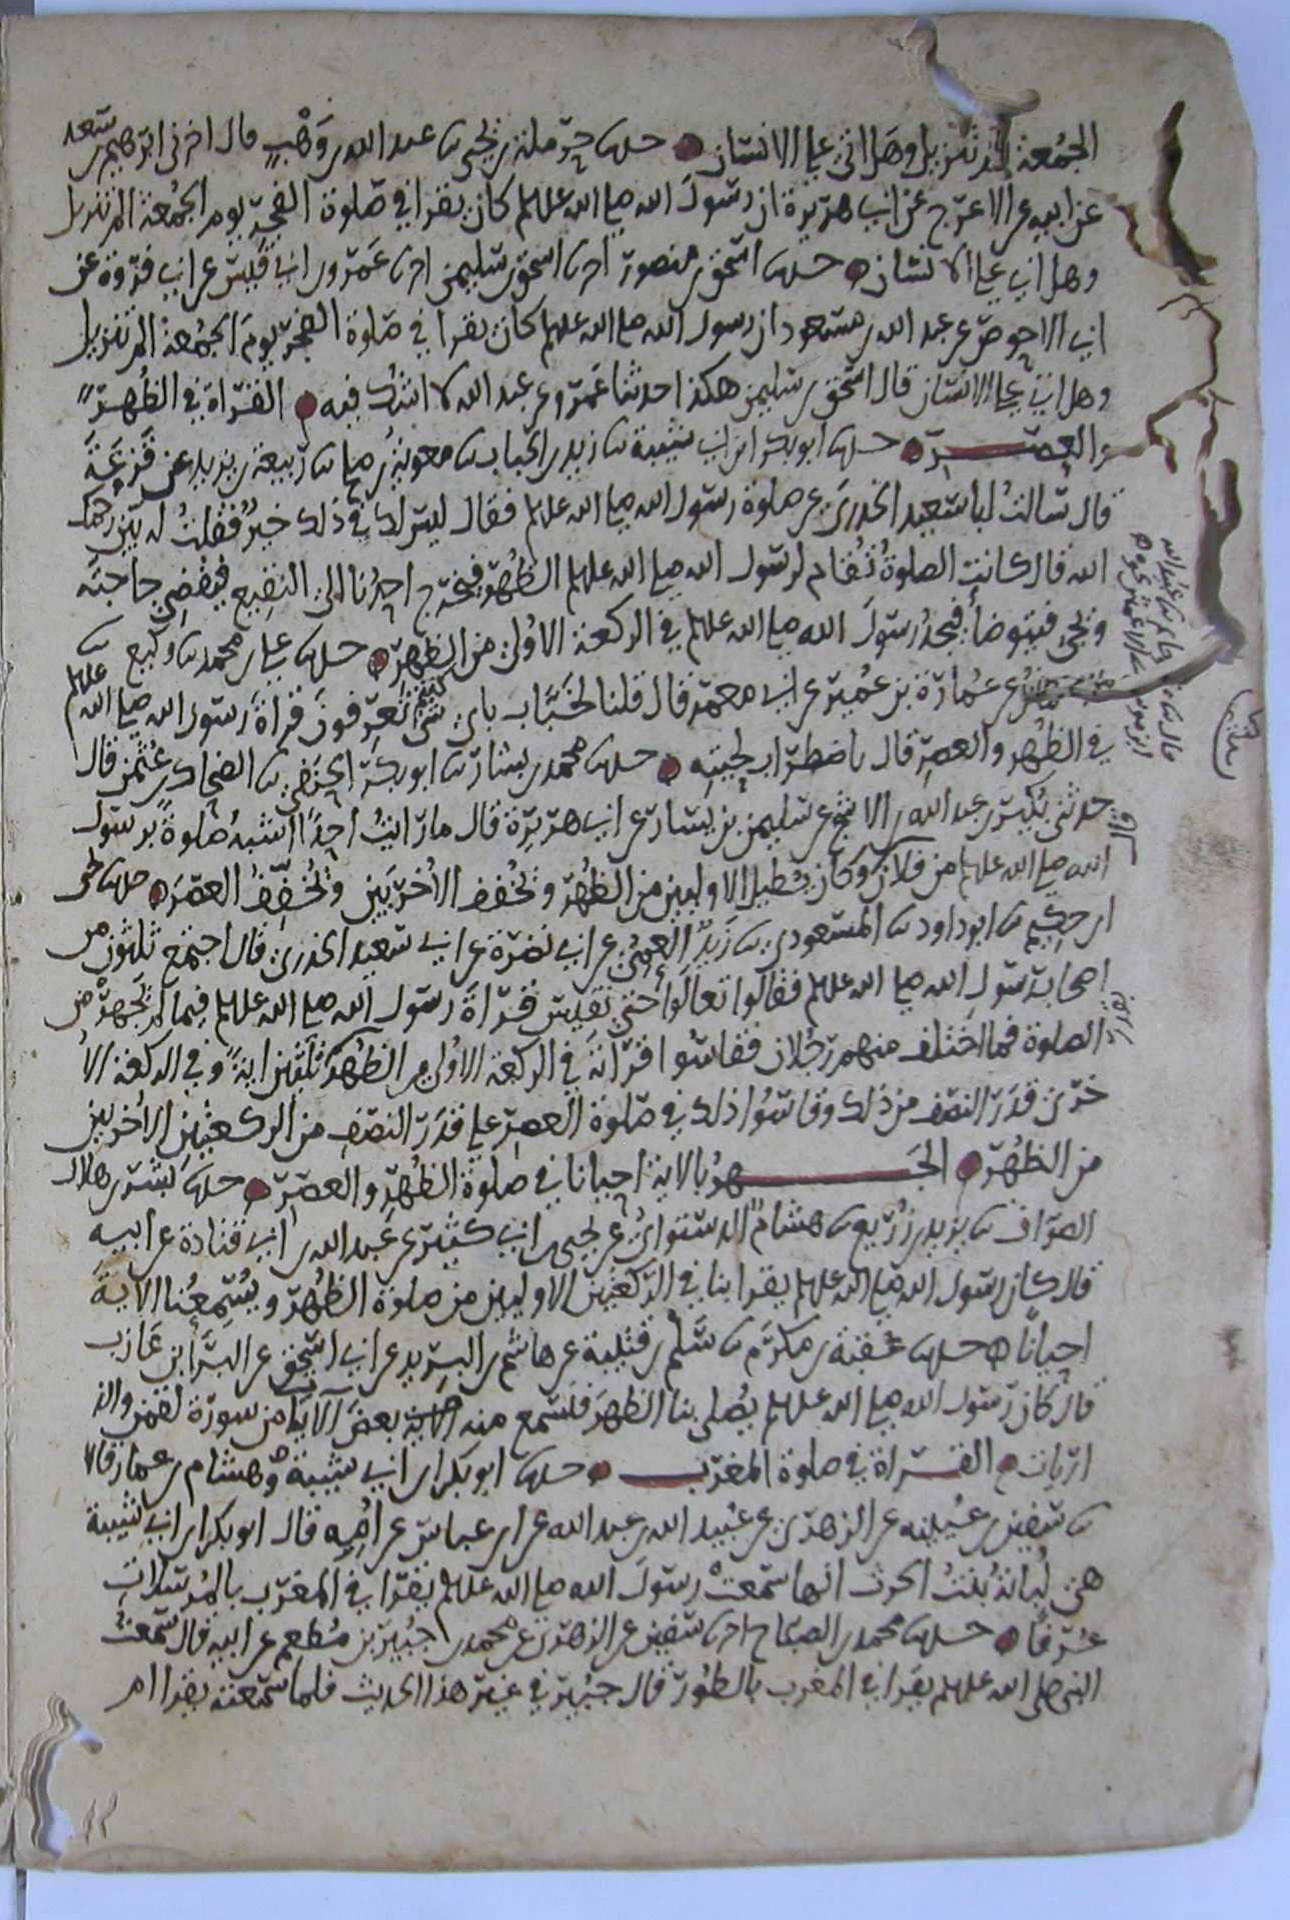 الجُمُعة الم تنزيل وهل اتى على الانسان حدثنا حرملة بن يحيى ثنا عبد الله بن وَهْب قال اخبرنى ابرهيم بن سَعد
عن ابيه عن الاعرج عن ابي هريرة ان رسول الله صلى الله عليه وسلم كان يقرا في صلوة الفجر يوم الجُمعة الم تنزيل
وهل اتى على الانسان حدثنا اسحق بن منصور اخبرنا اسحق بن سليمن اخبرنا عَمرو بن ابي قيس عن ابي فروة عن
ابي الاحوص عن عبد الله بن مسعود ان رسول الله صلى الله عليه وسلم كان يقرا في صلوة الفجر يومَ الجُمعة الم تنزيل
وهل اتى على الانسان قال اسحق بن سليمن هكذا حدثنا عَمرو عن عبد الله لا اشك فيه القراة في الظُهر
والعصر حدثنا ابو بكر ابن ابي شيبة ثنا زيد بن الحباب ثنا معوية بن صالح ثنا ربيعة بن يزيد عن قَزعَةَ
قال سَالتُ ابا سَعيد الخدري عن صلوة رسول الله صلى الله عليه وسلم فقال ليس لك في ذلك خيرٌ فقلتُ له بيّن رحمك
الله قال كانت الصلوةُ تُقام لرسول الله صلى الله عليه وسلم الظُهر فيخرج احدُنا الى النقيع فيقضي حاجته
ويجي فيتوضأ فيجدُ رسولَ الله صلى الله عليه وسلم في الركعة الاولى من الظهر حدثنا علي بن محمد ثنا وكيع ثنا
عن عُمارة بن عُمير عن ابي معمر قال قلنا لخَبَّاب باي شي كنتم تَعرفونَ قراةَ رسول الله صلى الله عليه وسلم
في الظهر والعصر قال باضطراب لحيته حدثنا محمد بن بشار ثنا ابو بكر الحنفي ثنا الضحاك بن عُثمن قال
حدثنى بُكير بن عبد الله بن الاشج عن سليمن بن يسار عن ابي هريرة قال ما رايتُ احداً اشبهُ صلوةً برسول
الله صلى الله عليه وسلم من فلان وكان يُطيل الاوليين من الظُهر ويُخفف الاُخريَين ويُخفِّفُ العصرَ حدثنا يحيى
ابن حكيم ثنا ابو داود ثنا المسعودي ثنا زَيدٌ العمىّ عن ابي نضرة عن ابي سعيد الخدري قال اجتمع ثلثون من
اصحاب رسول الله صلى الله عليه وسلم فقالوا تعالَوا حتى نقيس قراةَ رسول الله صلى الله عليه وسلم فيما لم يَجهر من
الصلوة فما اختلف منهم رجُلان فقاسُوا قراته في الركعة الاولى من الظهر كثلثين ايةً وفي الركعة الاُ
خرى قَدرَ النصف من ذلك وقاسُوا ذلك في صلوة العصر على قَدرِ النصف من الركعتين الاُخريين
من الظُهر الجَهرُ بالاية احيانا في صلوة الظُهر والعصر حدثنا بشر بن هلال
الصوّاف ثنا يزيد بن زُريع ثنا هشام الدستوائىّ عن يحيى بن ابي كثير عن عَبد الله بن ابي قتادة عن ابيه
قال كان رسول الله صلى الله عليه وسلم يقرا بنا في الركعتين الاوليين من صلوة الظُهر ويُسمِعُنا الايةَ
احيانًا حدثنا عُقبة بن مكرَم ثنا سَلم بن قتيبة عن هاشم بن البريد عن ابي اسحق عن البرّا بن عَازب
قال كان رسول الله صلى الله عليه وسلم يُصلي بنا الظهرَ فنسمع منه الاية بعضَ الايا من سورة لقمن والذ
اريات القراة في صلوة المغرب حدثنا ابو بكر ابن ابي شيبة وهشام بن عمار قالا
ثنا سُفين بن عُيينه عن الزهرى عن عُبيد الله بن عبد الله عن ابن عباس عن امّه قال ابو بكر ابن ابي شيبة
هي لُبابةُ بنتُ الحرث انها سَمعَتْ رسولَ الله صلى الله عليه وسلم يقرا في المغرب بالمُرسلات
عُرفًا حدثنا محمد بن الصبّاح اخبرنا سُفين عن الزهرى عن محمد بن جُبير بن مُطعم عن ابيه قال سَمعتُ
النبي صلى الله عليه وسلم يقرا في المغرب بالطُور قال جبير في غير هذا الحديث فلما سَمعته يقرا ام